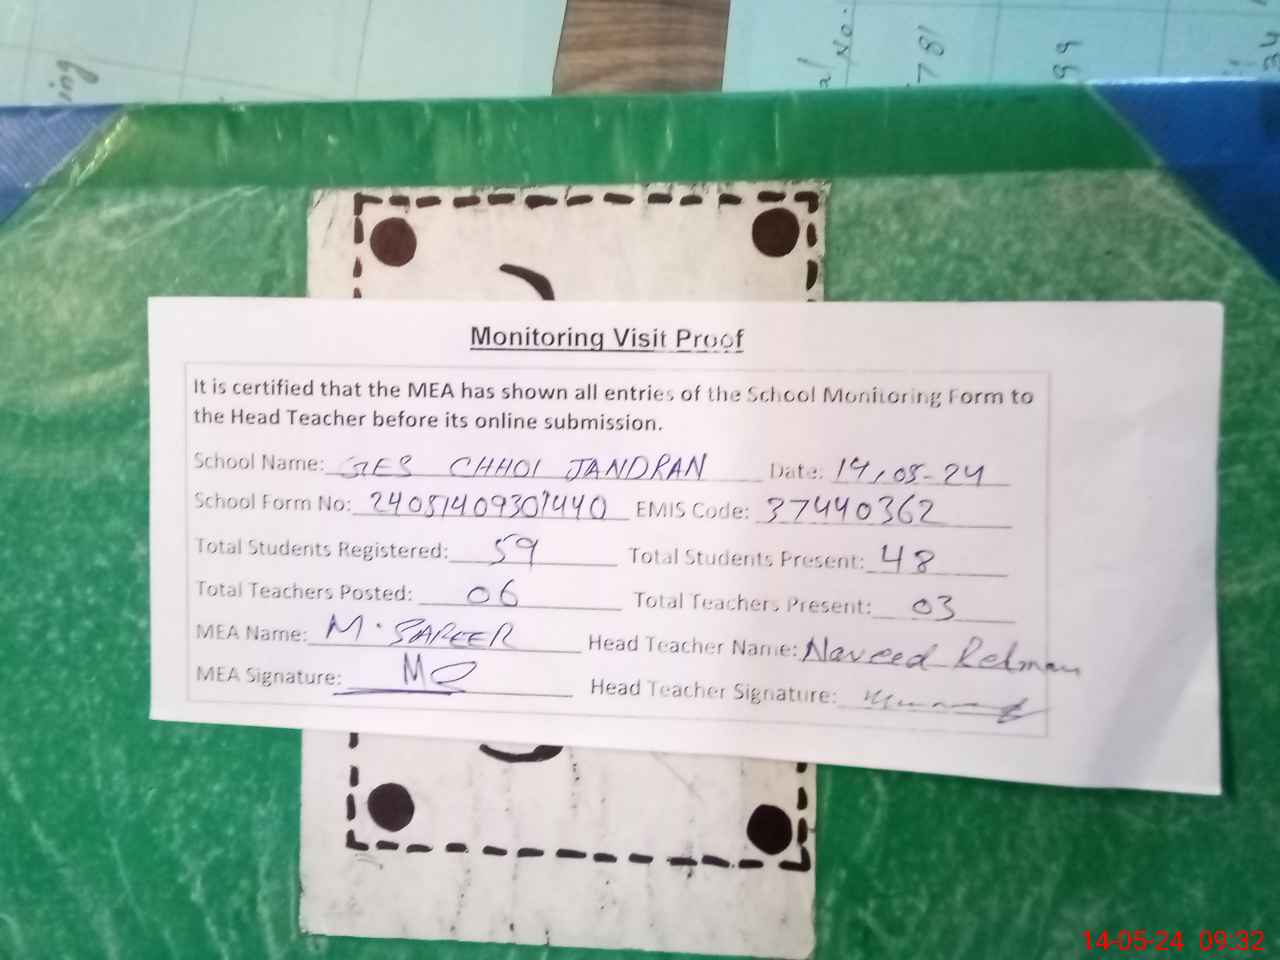 ing
No.
781
99
34
Monitoring Visit Proof
It is certified that the MEA has shown all entries of the School Monitoring Form to
the Head Teacher before its online submission.
School Name: GES CHHOI JANDRAN Date: 14,05-24
School Form No: 24051409307440 EMIS Code: 37440362
Total Students Registered: 59 Total Students Present: 48
Total Teachers Posted: 06 Total Teachers Present: 03
MEA Name: M. Head Teacher Name: Naveed Rehman
MEA Signature: Head Teacher Signature:
14-05-24 09:32